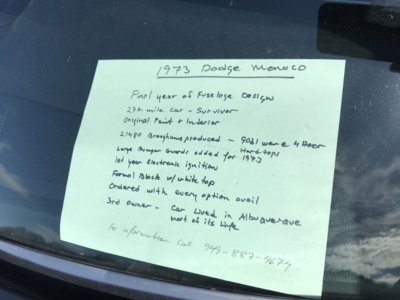 1973 Dodge Monaco
Final year of Fuselage Design
27K mile car - Survivor
Original Paint + Interior
21480 Broghams produced - were 4 Door
Hardtops
Large Bumper Guards added for 1973
1st year Electronic ignition
Formal Black w/ white top
Ordered with every option avail
3rd owner - Car Lived in Albuquerque
most of its life
For information Call 949-887-4674